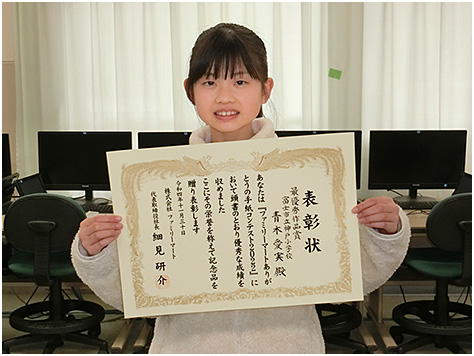 表彰状
最優秀作品賞
富士市立神戸小学校
青木愛実 殿
あなたは『ファミリーマートありが
とうの手紙コンテスト2022』に
おいて頭書のとおり優秀な成績を
収めました
ここにその栄誉を称えて記念品を
贈り表彰します
令和四年十二月三十日
株式会社ファミリーマート
代表取締役社長 細見研介